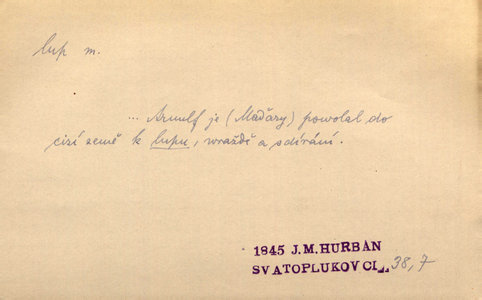 lup m.
... Arnulf je (Maďary) powolal do
cizí země k lupu, wraždě a sdírání.
1845 J.M.HURBAN
SVATOPLUKOVCI 38,7